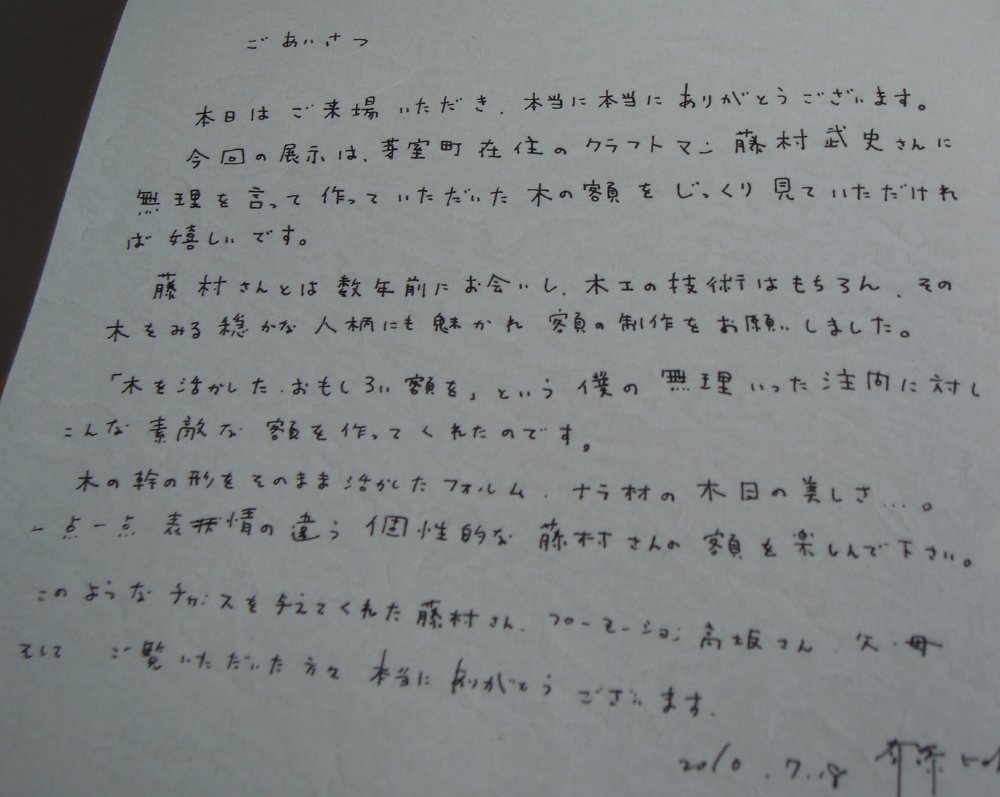 ごあいさつ
本日はご来場いただき、本当に本当にありがとうございます。
今回の展示は、芽室町在住のクラフトマン藤村武史さんに
無理を言って作っていただいた木の額をじっくり見ていただけれ
ば嬉しいです。
藤村さんとは数年前にお会いし、木工の技術はもちろん、その
木をみる穏かな人柄にも魅かれ額の制作をお願いしました。
「木を活かした、おもしろい額を」という僕の無理いった注内に対し
こんな素敵な額を作ってくれたのです。
木の幹の形をそのまま活かしたフォルム、ナラ材の木目の美しさ…。
一点一点表情の違う個性的な藤村さんの額を楽しんで下さい。
このようなチャンスを与えてくれた藤村さん、フローモーション高坂さん、父・母
そして ご覧いただいた方々本当にありがとうございます。
2010.7.18